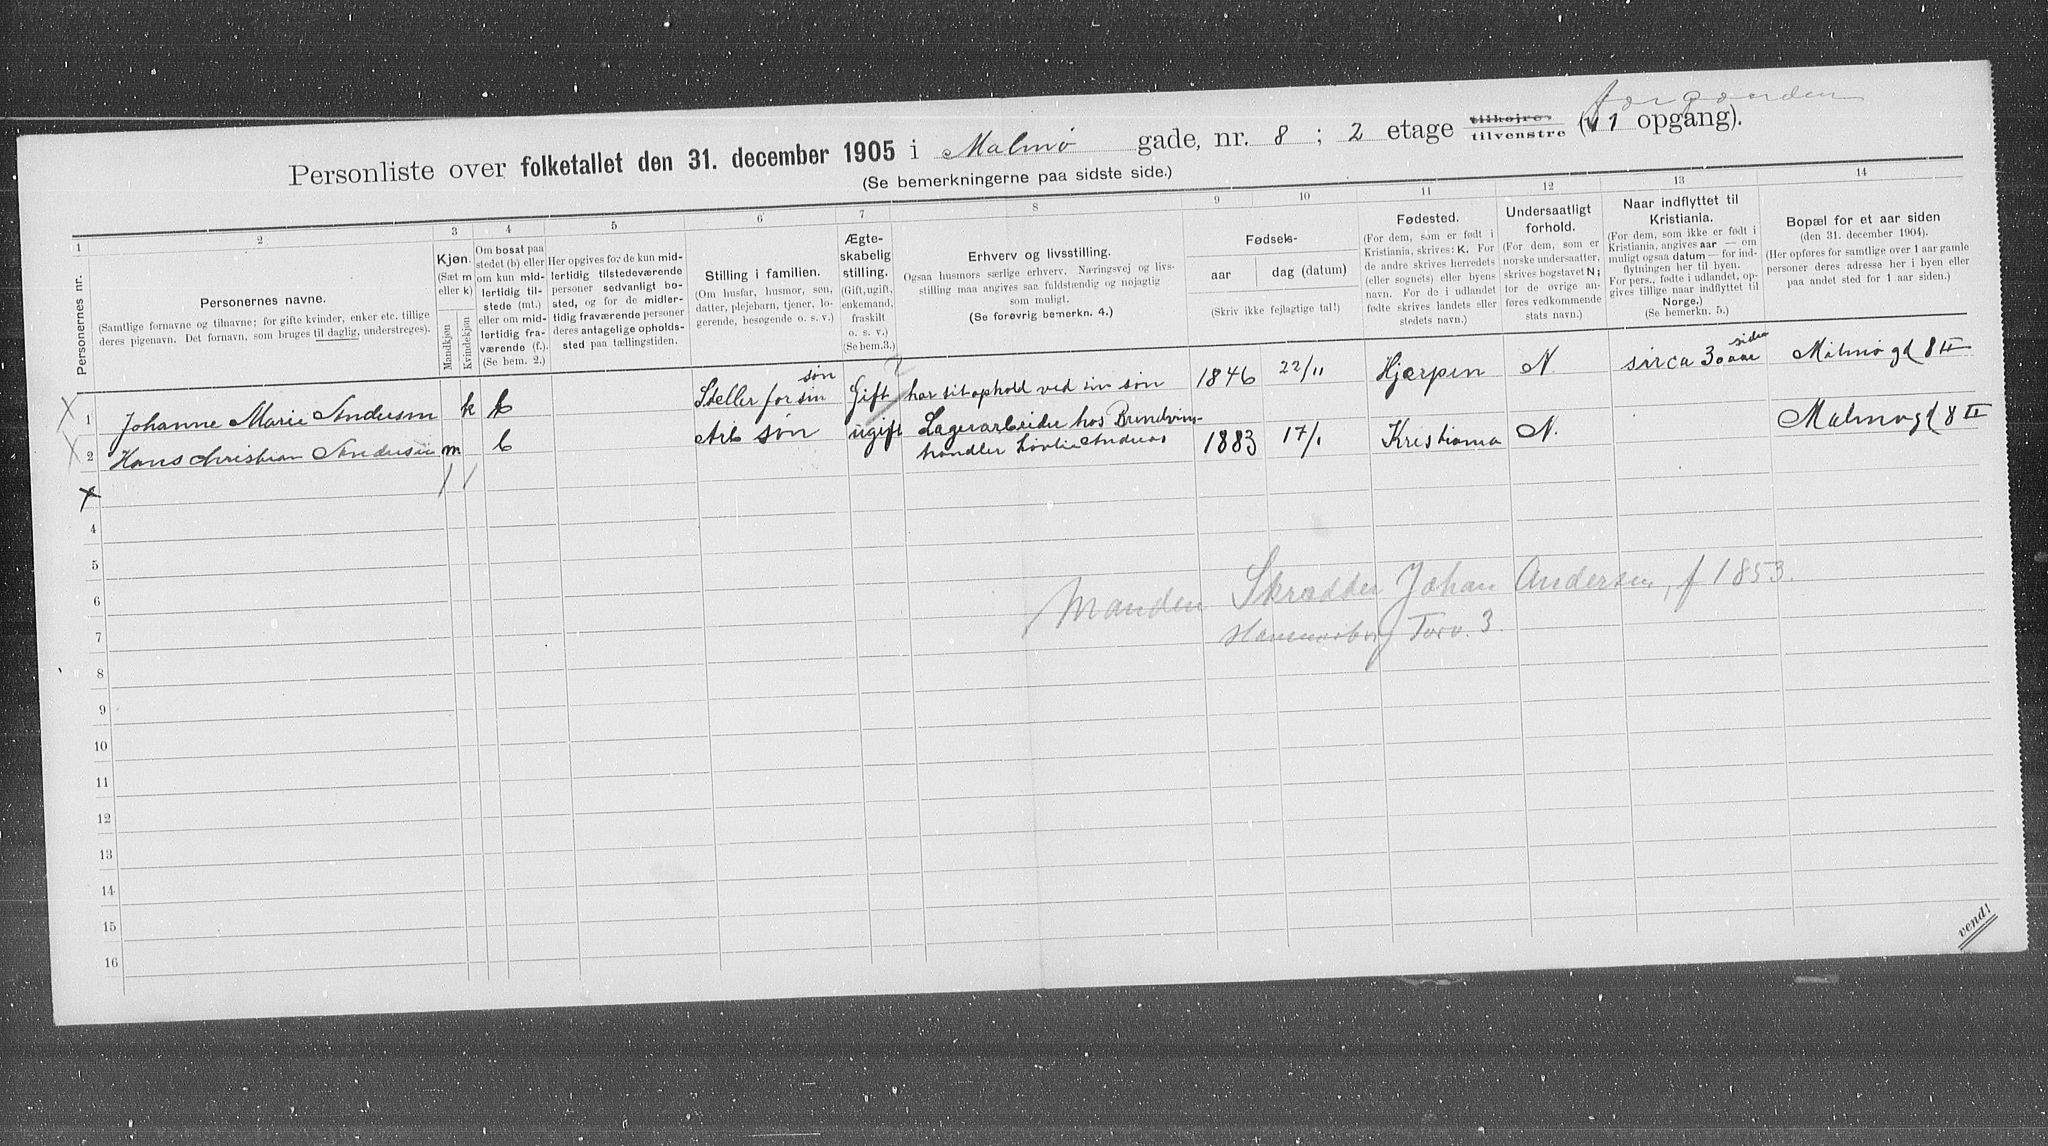 forgaarden
Personliste over folketallet den 31. december 1905 i Malmø gade, nr. 8 ; 2 etage tilhøjre tilvenstre ( 1 opgang).
(Se bemerkningerne paa sidste side.)
1 2 3 4 5 6 7 8 9 10 11 12 13 14
Personernes nr.
Personernes navne.
(Samtlige fornavne og tilnavne; for gifte kvinder, enker etc. tillige
deres pigenavn. Det fornavn, som bruges til daglig, understreges).
Kjøn.
(Sæt m
eller k)
Mandkjøn
Kvindekjøn
Om bosat paa
stedet (b) eller
om kun mid-
lertidig til-
stede (mt.)
eller om mid-
lertidig fra-
værende (f.).
(Se bem. 2.)
Her opgives for de kun mid-
lertidig tilstedeværende
personer sedvanligt bo-
sted, og for de midler-
tidig fraværende personer
deres antagelige opholds-
sted paa tællingstiden.
Stilling i familien.
(Om husfar, husmor, søn,
datter, plejebarn, tjener, lo-
gerende, besøgende o. s. v.)
Ægte-
skabelig
stilling.
(Gift, ugift,
enkemand,
fraskilt
o. s. v.)
(Se bem.3.)
Erhverv og livsstilling.
Ogsaa husmors særlige erhverv. Næringsvej og livs-
stilling maa angives saa fuldstændig og nøjagtig
som muligt.
(Se forøvrig bemerkn. 4.)
Fødsels-
aar
dag (datum)
(Skriv ikke fejlagtige tal!)
Fødested.
(For dem, som er født i
Kristiania, skrives: K. For
de andre skrives herredets
(eller sognets) eller byens
navn. For de i udlandet
fødte skrives landets eller
stedets navn.)
Undersaatligt
forhold.
(For dem, som er
norske undersaatter,
skrives bogstavet N;
for de øvrige an-
føres vedkommende
stats navn.)
Naar indflyttet til
Kristiania.
(For dem, som ikke er født i
Kristiania, angives aar — om
muligt ogsaa datum — for ind-
flytningen her til byen.
For pers., fødte i udlandet, op-
gives tillige naar indflyttet til
Norge.)
(Se bemerkn. 5.)
Bopæl for et aar siden
(den 31. december 1904).
(Her opføres for samtlige over 1 aar gamle
personer deres adresse her i byen eller
paa andet sted for 1 aar siden.)
1 Johanne Marie Andersen k b Steller for sin søn Gift har sit ophold ved sin søn 1846 22/11 Hjerpen N. sirca 30 aar siden Malmøgd 8 II
2 Hans Christian Andersen m b søn ugift Lagerarbeider hos Brændevins-
handler Løvlie Andreas 1883 17/1 Kristiania N. Malmøgd 8 II
4
5
Manden Skrædder Johan Andersen, f 1853.
6
Hammersborg Torv. 3
7
8
9
10
11
12
13
14
15
16
vend!